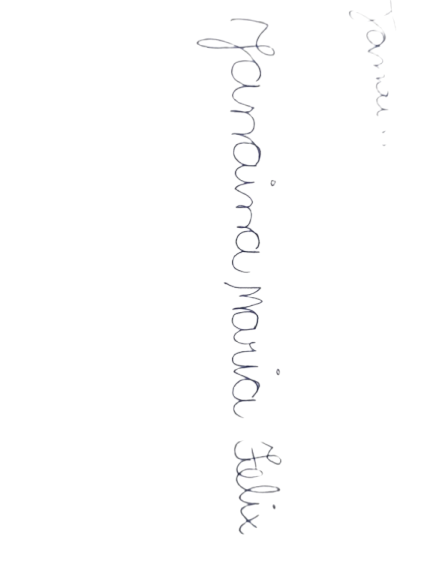 Janaina Maria Felix